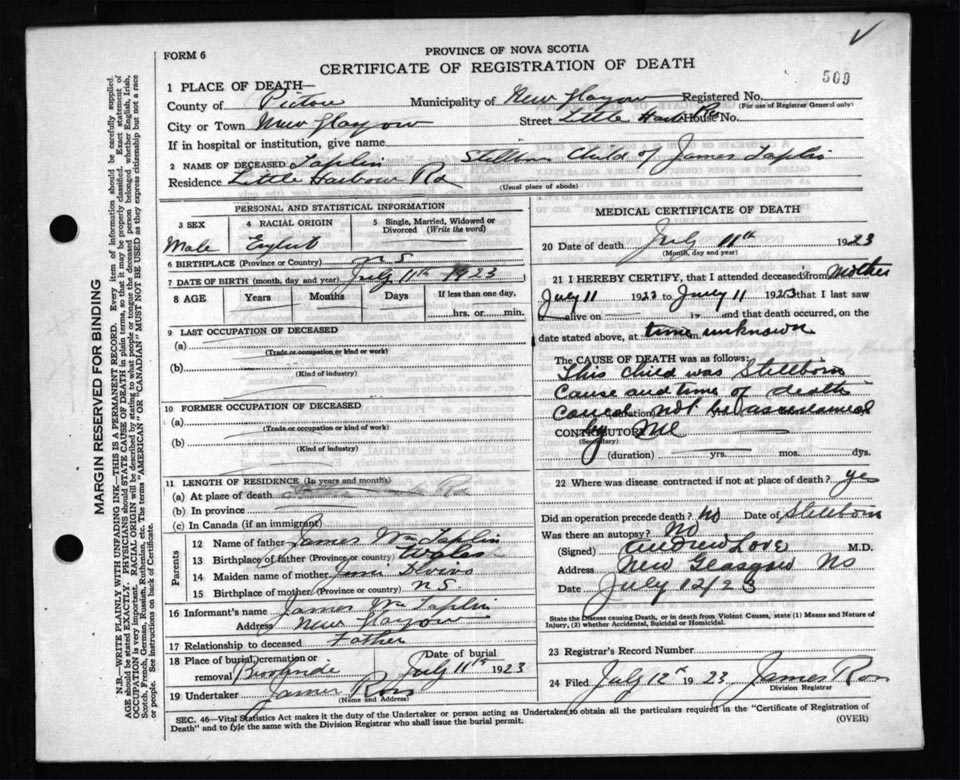 FORM 6
PROVINCE OF NOVA SCOTIA
CERTIFICATE OF REGISTRATION OF DEATH
509
1 PLACE OF DEATH—
County of Pictou Municipality of New Glasgow Registered No.
(For use of Registrar General only)
City or Town New Glasgow Street Little Harbr Rd House No.
If in hospital or institution, give name
2 NAME OF DECEASED Taplin Stillborn Child of James Taplin
Residence Little Harbour Rd
(Usual place of abode)
PERSONAL AND STATISTICAL INFORMATION
3 SEX 4 RACIAL ORIGIN 5 Single, Married, Widowed or Divorced (Write the word)
Male English
6 BIRTHPLACE (Province or Country) N S
7 DATE OF BIRTH (month, day and year) July 11th 1923
8 AGE Years Months Days If less than one day,
hrs. or min.
9 LAST OCCUPATION OF DECEASED
(a)
(Trade or occupation or kind or work)
(b)
(Kind of industry)
10 FORMER OCCUPATION OF DECEASED
(a)
(Trade or occupation or kind or work)
(b)
(Kind of industry)
11 LENGTH OF RESIDENCE (In years and months)
(a) At place of death
(b) In province
(c) In Canada (if an immigrant)
Parents
12 Name of father James Wm Taplin
13 Birthplace of father (Province or country) Wales
14 Maiden name of mother
15 Birthplace of mother (Province or country) N S.
16 Informant's name James Wm Taplin
Address New Glasgow
17 Relationship to deceased Father
18 Place of burial, cremation or removal Date of burial
July 11th 1923
19 Undertaker James Ross
(Name and Address)
MEDICAL CERTIFICATE OF DEATH
20 Date of death July 11th 1923
(Month, day and year)
21 I HEREBY CERTIFY, that I attended deceased from Mother
July 11 1923 to July 11 1923 that I last saw
alive on 19 and that death occurred, on the
date stated above, at time unknown m.
The CAUSE OF DEATH was as follows:
This child was Stillborn
Cause and time of death
(duration)
Could not be ascertained
CONTRIBUTORY
(Secondary)
by me
(duration) yrs. mos. dys.
22 Where was disease contracted if not at place of death? yes
Did an operation precede death? No Date of Stillborn
Was there an autopsy? No
(Signed) Andrew Love M.D.
Address New Glasgow NS
Date July 12/23
State the Disease causing Death, or in death from Violent Causes, state (1) Means and Nature of
Injury, (2) whether Accidental, Suicidal or Homicidal.
23 Registrar's Record Number
24 Filed July 12th 1923 James Ross
Division Registrar
SEC. 46—Vital Statistics Act makes it the duty of the Undertaker or person acting as Undertaker to obtain all the particulars required in the "Certificate of Registration of
Death" and to file the same with the Division Registrar who shall issue the burial permit.
(OVER)
MARGIN RESERVED FOR BINDING
N.B.—WRITE PLAINLY WITH UNFADING INK—THIS IS A PERMANENT RECORD. Every item of information should be carefully supplied.
AGE should be stated EXACTLY. PHYSICIANS should STATE CAUSE OF DEATH in plain terms, so that it may be properly classified. Exact statement of
OCCUPATION is very important. RACIAL ORIGIN will be described by stating to what people or tongue the deceased person belonged whether English, Irish,
Scotch, French, German, Russian, Ruthenian, etc. The terms "AMERICAN" OR "CANADIAN" MUST NOT BE USED as they express citizenship but not a race
or people. See instructions on back of Certificate.